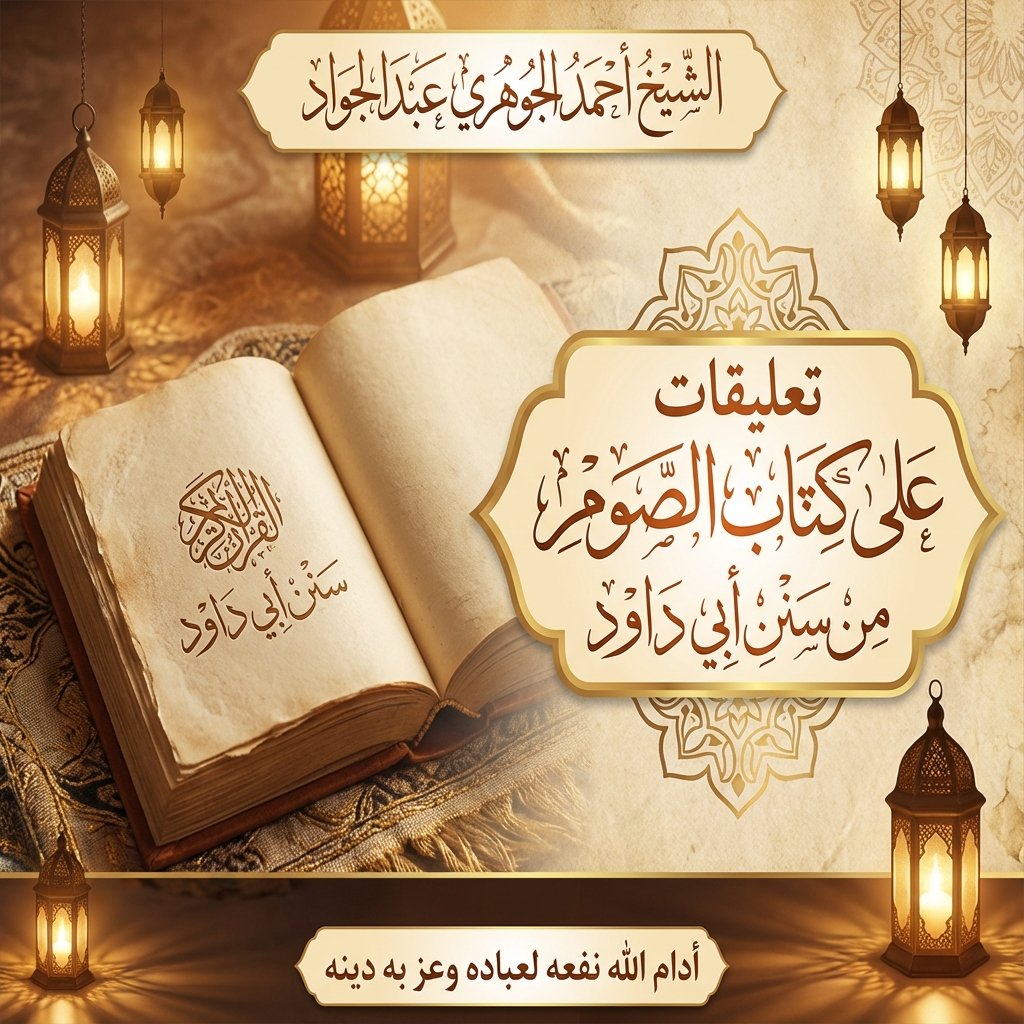 الشَّيْخُ أَحْمَدُ الجَوْهَرِي عَبْدَ الجَوَاد
تعليقات
عَلَى كِتَابِ الصَّوْمِ
مِن سَنَنِ أَبِي دَاوُد
القرآن الكريم
سَنَنْ أَبِي دَاوُد
أدام الله نفعه لعباده وعز به دينه